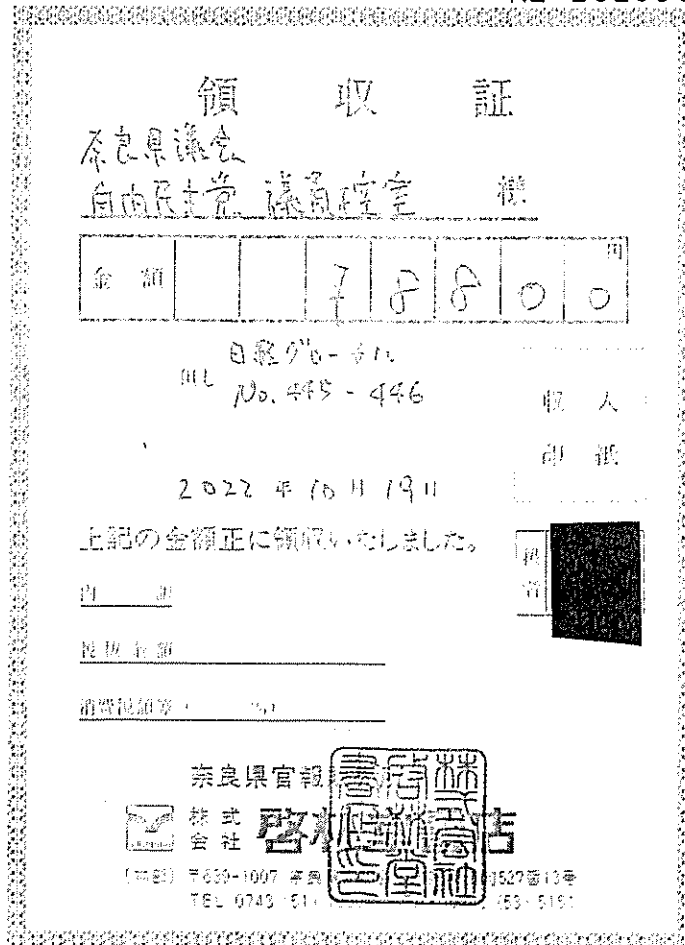 領収証
奈良県議会
自由民主党 議員控室 様
金額 78800 円
No. 445 - 446
収入
印紙
2022年10月19日
上記の金額正に領収いたしました。
内訳
税抜金額
消費税額等( %)
奈良県官報
株式会社 啓林堂書店
〒639-1007
527番13号
TEL 0743